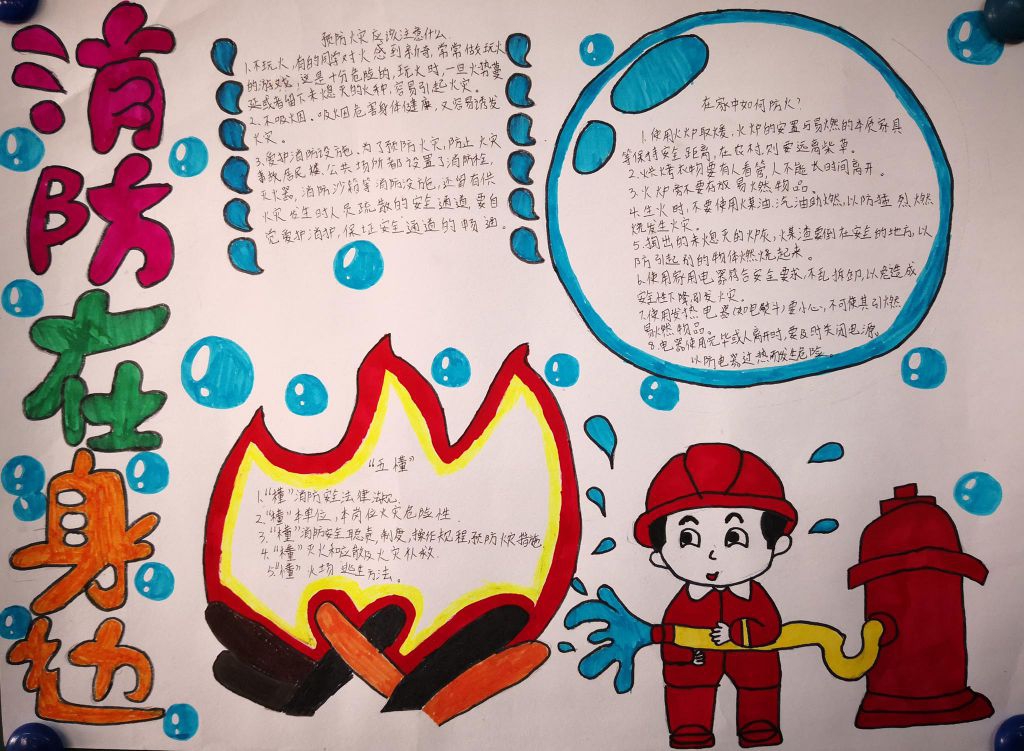 消防在身边
预防火灾应该注意什么
1.不玩火,有的同学对火感到新奇,常常做玩火
的游戏,这是十分危险的,玩火时,一旦火势蔓
延或者留下未熄灭的火种,容易引起火灾。
2.不吸烟。吸烟危害身体健康,又容易诱发
火灾。
3.爱护消防设施。为了预防火灾,防止火灾
事故,居民楼,公共场所都设置了消防栓,
灭火器,消防沙箱等消防设施,还留有供
火灾发生时人员疏散的安全通道,要自
觉爱护消护,保证安全通道的畅通。
在家中如何防火?
1.使用火炉取暖,火炉的安置与易燃的木质家具
等保持安全距离,在农村,则要远离柴草。
2.烘烤衣物要有人看管,人不能长时间离开。
3.火炉旁不要存放易燃物品。
4.生火时,不要使用煤油.汽油助燃,以防猛烈燃
烧发生火灾。
5.掏出的未熄灭的炉灰,煤渣要倒在安全的地方,以
防引起别的物体燃烧起来。
6.使用家用电器符合安全要求,不乱拆卸,以免造成
安全性下降,引发火灾。
7.使用发热电器(如电熨斗)要小心,不可使其引燃
易燃物品。
8.电器使用完毕或人离开时,要及时关闭电源。
以防电器过热而发生危险。
“五懂”
1.“懂”消防安全法律法规
2.“懂”本单位,本岗位火灾危险性.
3.“懂”消防安全职责,制度,操作规程,预防火灾措施.
4.“懂”灭火和应散及火灾扑救
5.“懂”火场逃生方法。